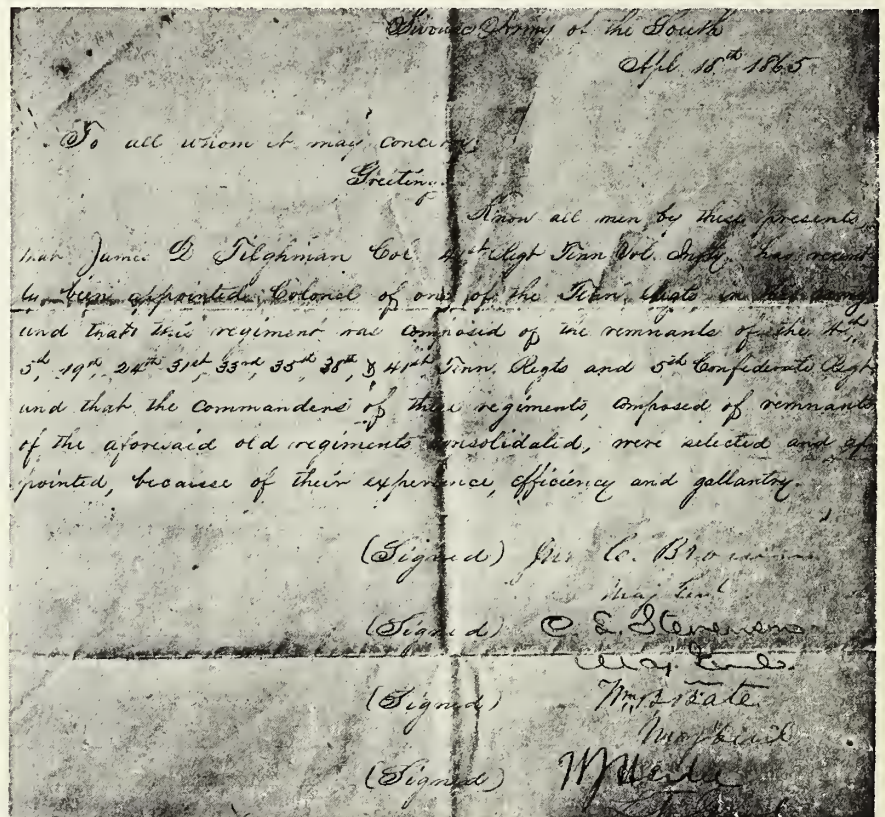 Bivouac Army of the South
Apl. 18th 1865
To all whom it may concern,
Greeting
Know all men by these presents
that James D Tilghman Col 41st Regt Tenn Vol. Infty. has recent
ly been appointed Colonel of one of the Tenn. Regts in this army
and that this regiment was composed of the remnants of the 4th,
5th, 19th, 24th 31st, 33rd, 35th, 38th, & 41st Tenn. Regts and 5th Confederate Regt
and that the commanders of these regiments, composed of remnants
of the aforesaid old regiments consolidated, were selected and ap
pointed, because of their experience, efficiency and gallantry.
(Signed) Jno C. Brown
Maj Genl
(Signed) C. L. Stevenson
Maj. Genl.
(Signed) Wm. B Bate
Maj Genl
(Signed) W J Hardee
Lt. Genl